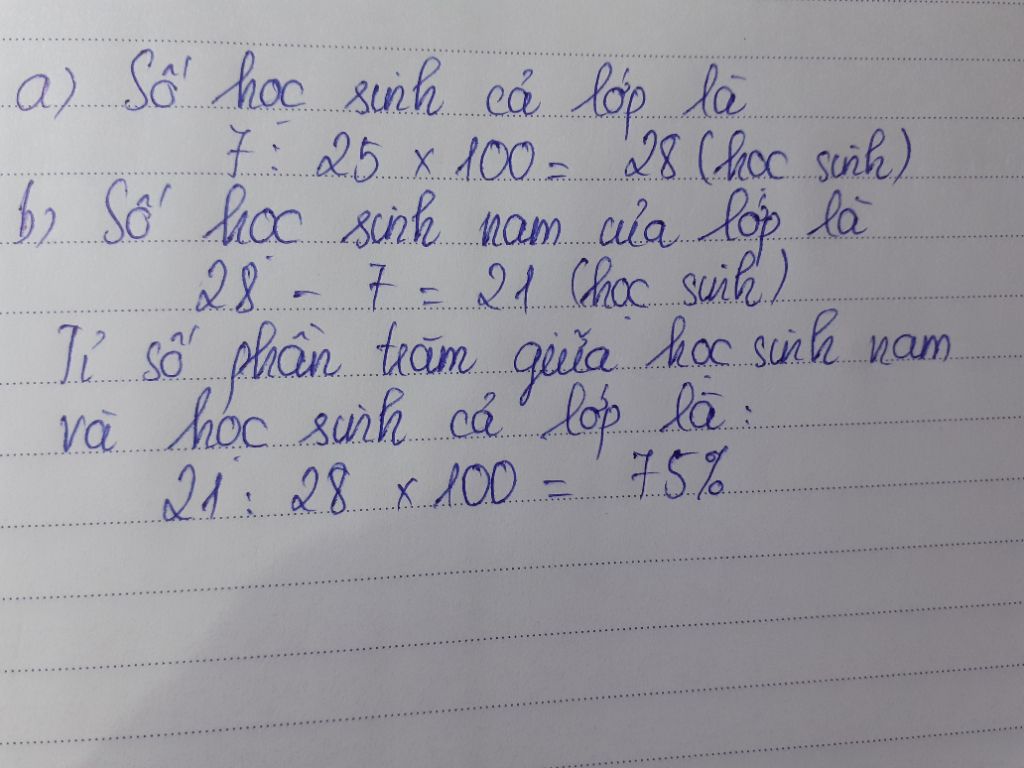 a) Số học sinh cả lớp là
7 : 25 x 100 = 28 (học sinh)
b) Số học sinh nam của lớp là
28 - 7 = 21 (học sinh)
Tỉ số phần trăm giữa học sinh nam
và học sinh cả lớp là :
21 : 28 x 100 = 75%